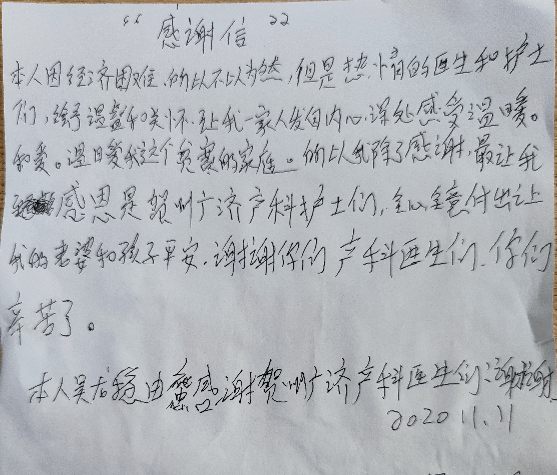 “感谢信”
本人因经济困难.所以不以为然,但是热情的医生和护士
们,给予温馨和关怀.让我一家人发自内心深处感受温暖。
和爱。温暖我这个贫寒的家庭。所以我除了感谢,最让我
感恩是贺州广济产科护士们,全心全意付出让
我的老婆和孩子平安.谢谢你们产科医生们.你们
辛苦了。
本人吴 稳由 感谢贺州广济产科医生们.谢谢
2020 11.11